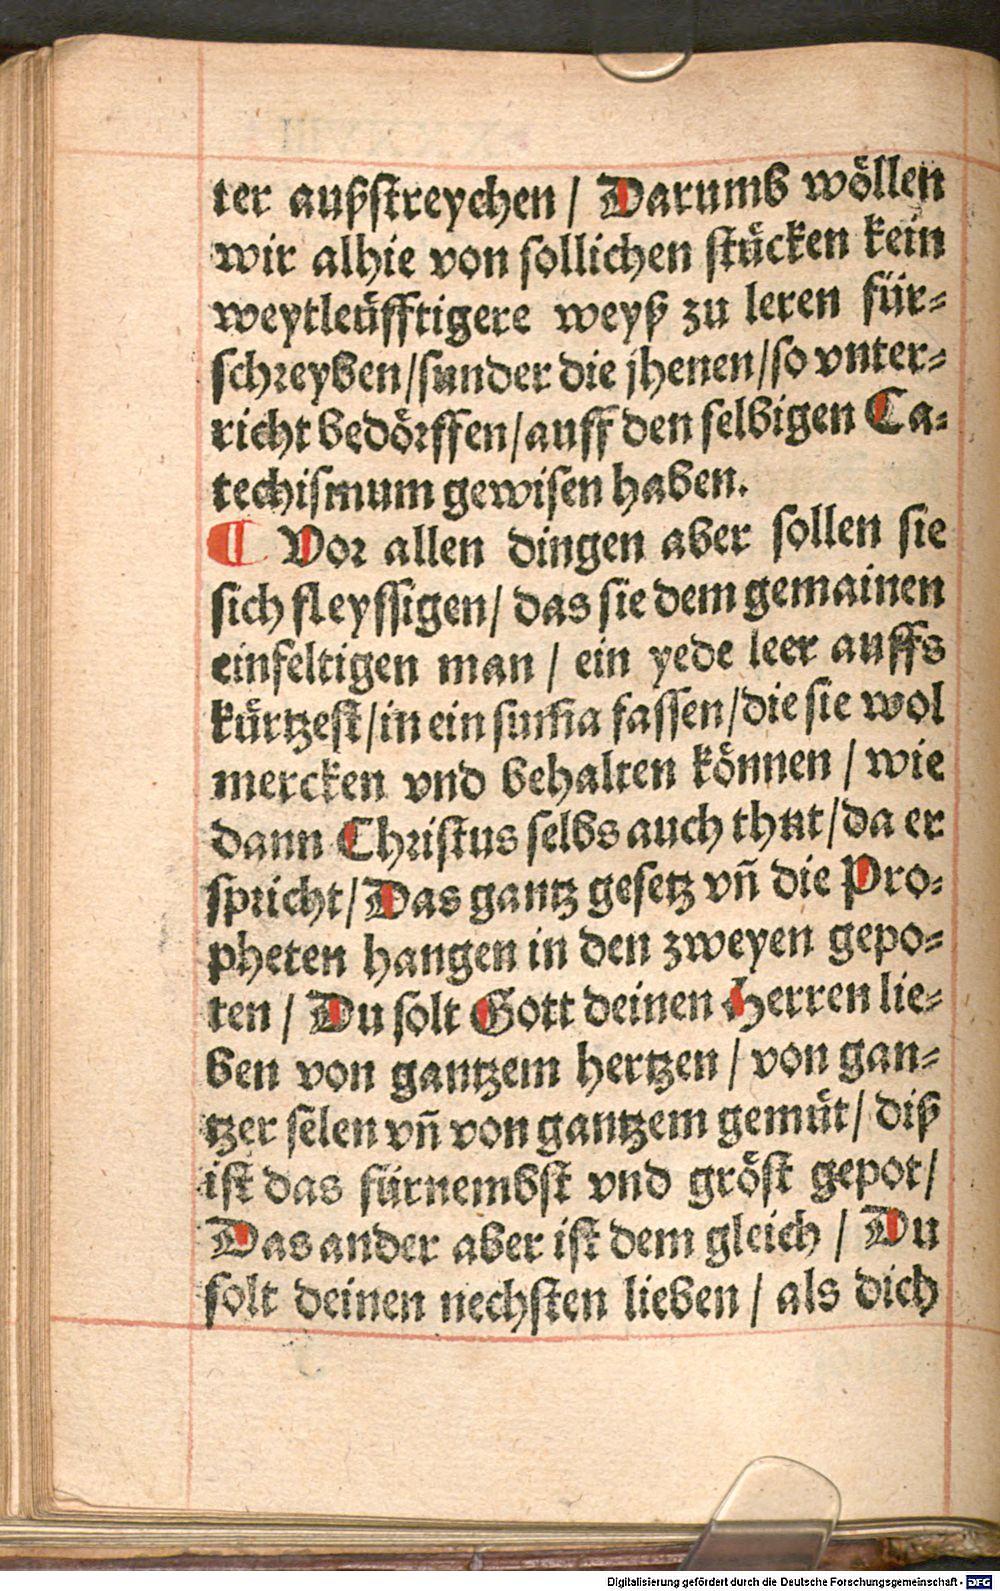 ter außstreychen / Darumb wöllen
wir alhie von sollichen stücken kein
weytleüfftigere weyß zu leren für⸗
schreyben/sunder die jhenen/so vnter⸗
richt bedörffen/auff den selbigen Ca⸗
techismum gewisen haben.
¶ Vor allen dingen aber sollen sie
sich fleyssigen/ das sie dem gemainen
einfeltigen man / ein yede leer auffs
kürtzest/in ein sum̄a fassen/die sie wol
mercken vnd behalten können / wie
dann Christus selbs auch thut/da er
spricht/Das gantz gesetz vñ die Pro⸗
pheten hangen in den zweyen gepo⸗
ten / Du solt Gott deinen Herren lie⸗
ben von gantzem hertzen / von gan⸗
tzer selen vñ von gantzem gemüt/ diß
ist das fürnembst vnd gröst gepot/
Das ander aber ist dem gleich / Du
solt deinen nechsten lieben / als dich
Digitalisierung gefördert durch die Deutsche Forschungsgemeinschaft - DFG